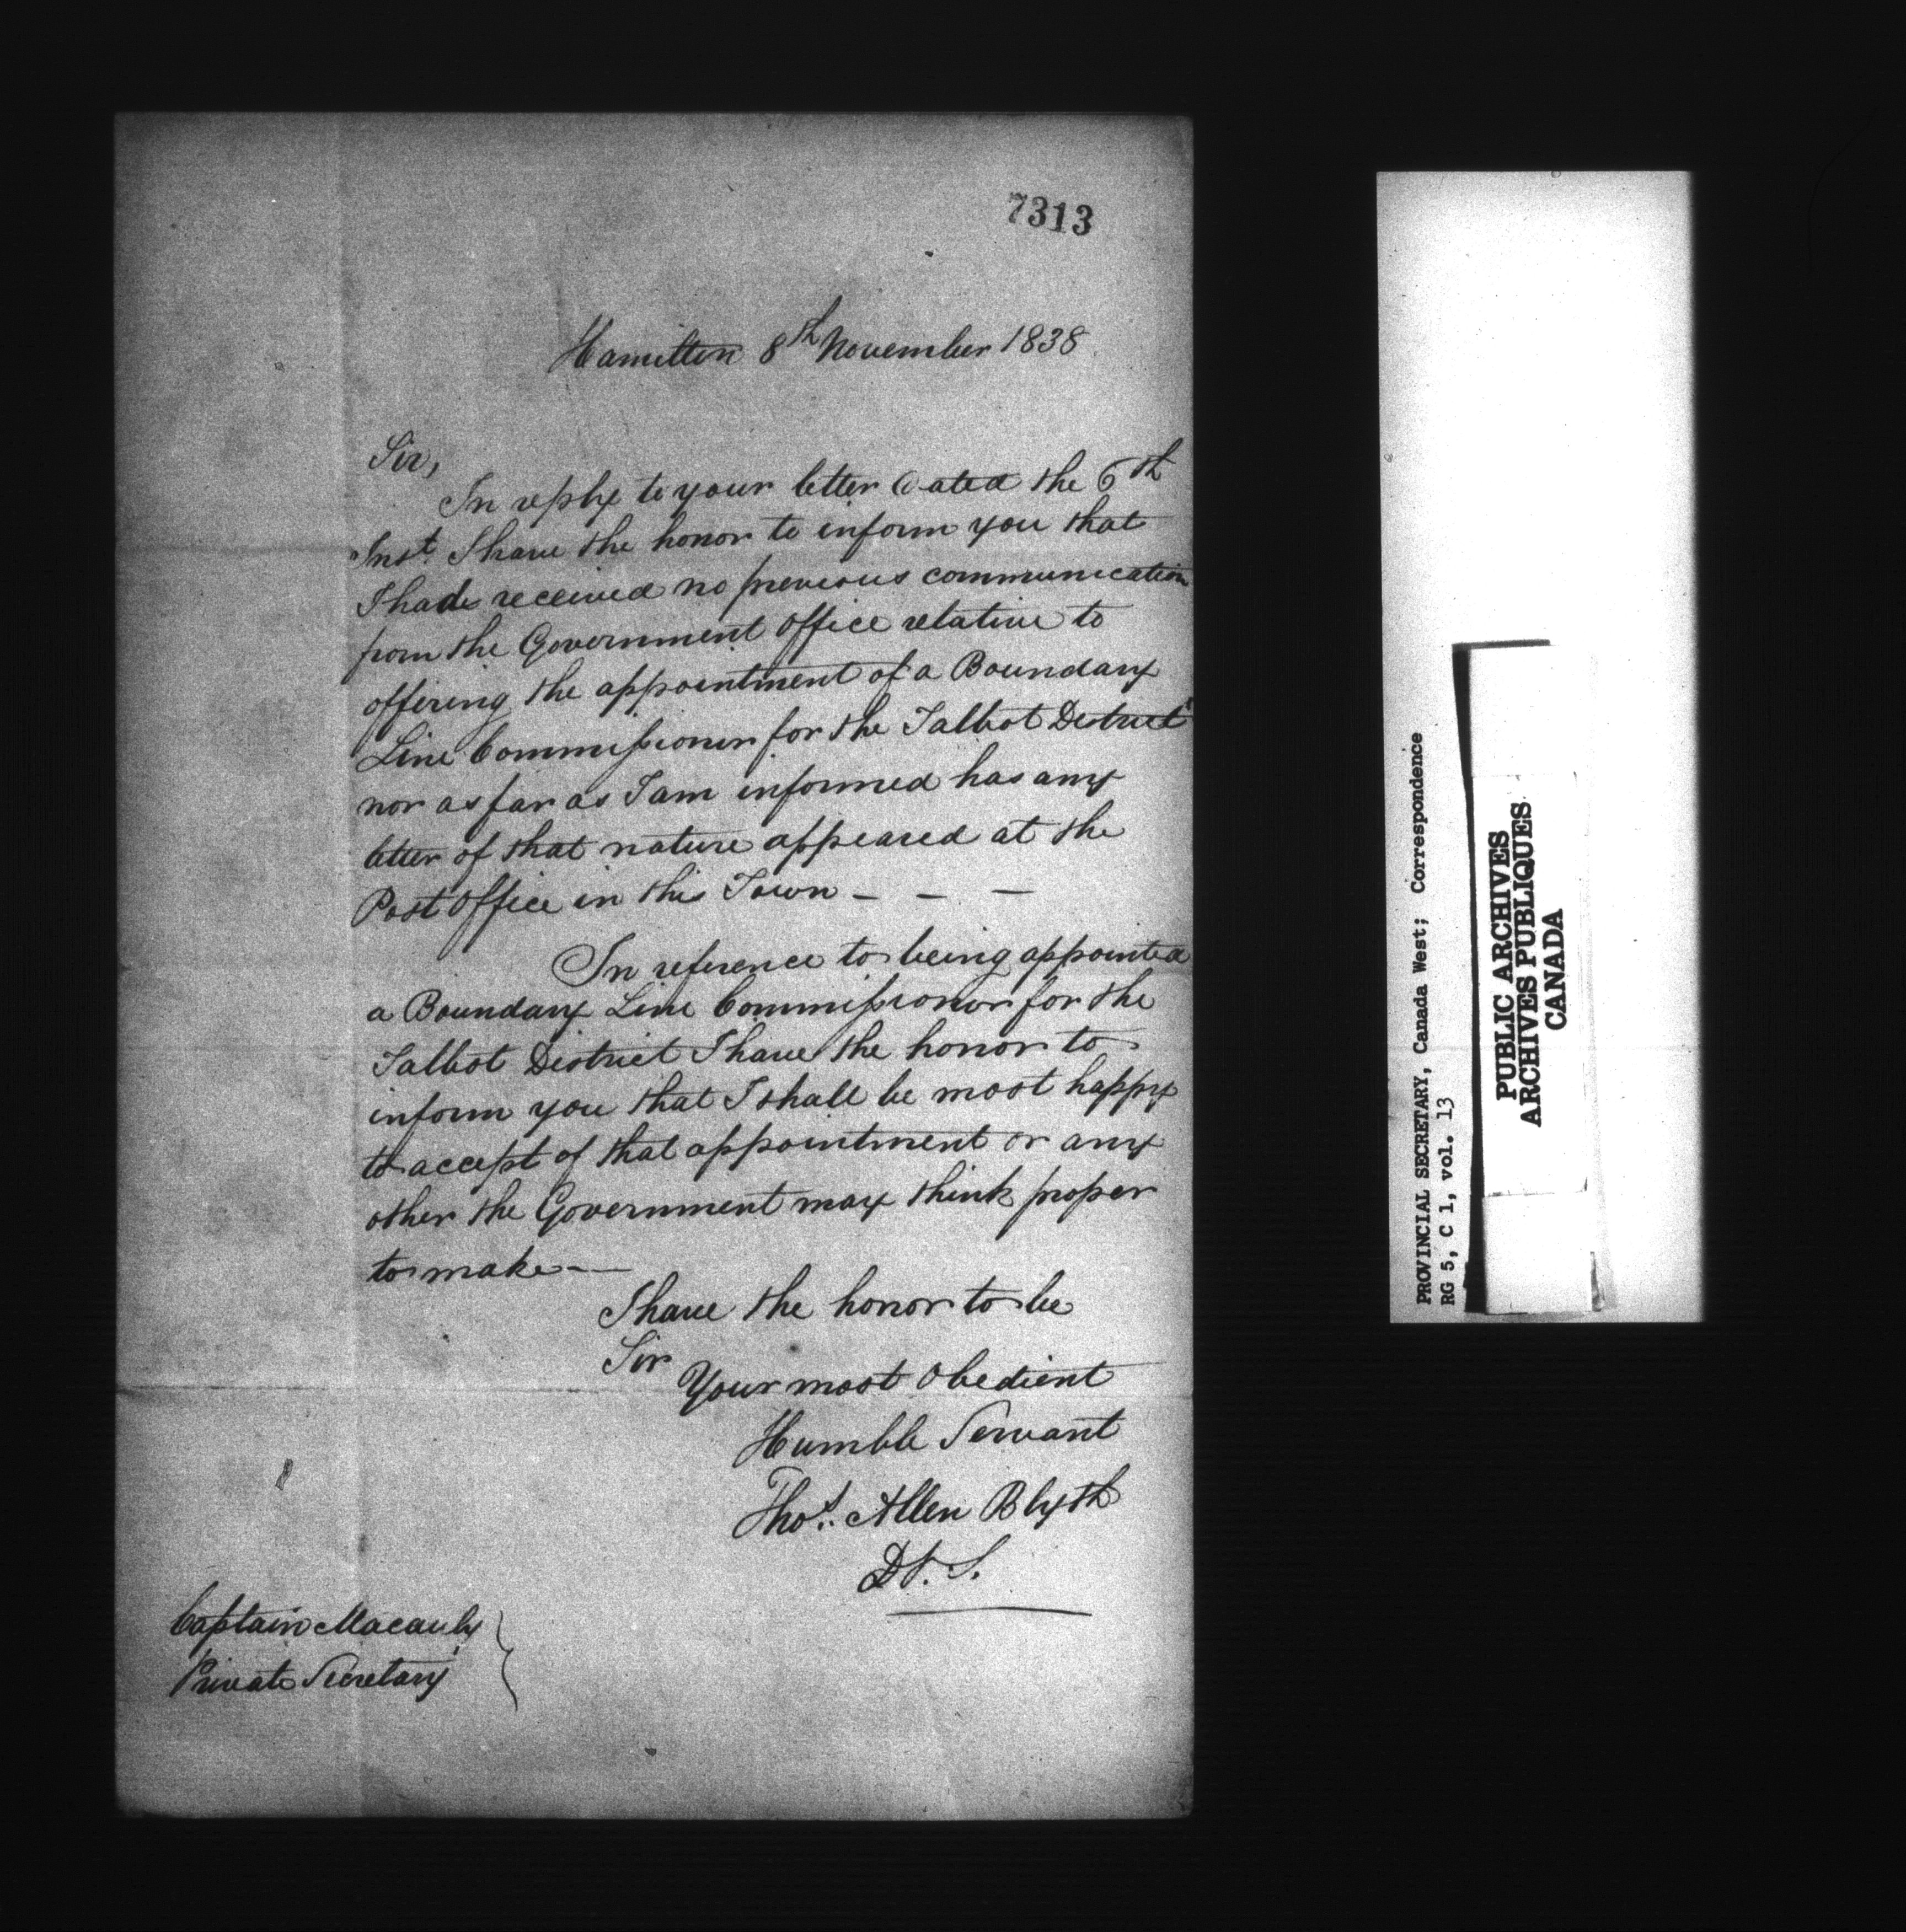 7313
Hamilton 8th November 1838
Sir,
In reply to your letter Dated the 6th
Inst. I have the honor to inform you that
I had received no previous communication
from the Government Office relative to
offering the appointment of a Boundary
Line Commissioner for the Talbot District
nor as far as I am informed has any
letter of that nature appeared at the
Post Office in this Town - - -
In reference to being appointed
a Boundary Line Commissioner for the
Talbot District I have the honor to
inform you that I shall be most happy
to accept of that appointment or any
other the Government may think proper
to make -
I have the honor to be
Sir
Your most Obedient
Humble Servant
Thos. Allen Blyth
D. S.
Captain Macauly
Private Secretary
PROVINCIAL SECRETARY, Canada West; Correspondence
RG 5, C 1, vol. 13
PUBLIC ARCHIVES
ARCHIVES PUBLIQUES
CANADA